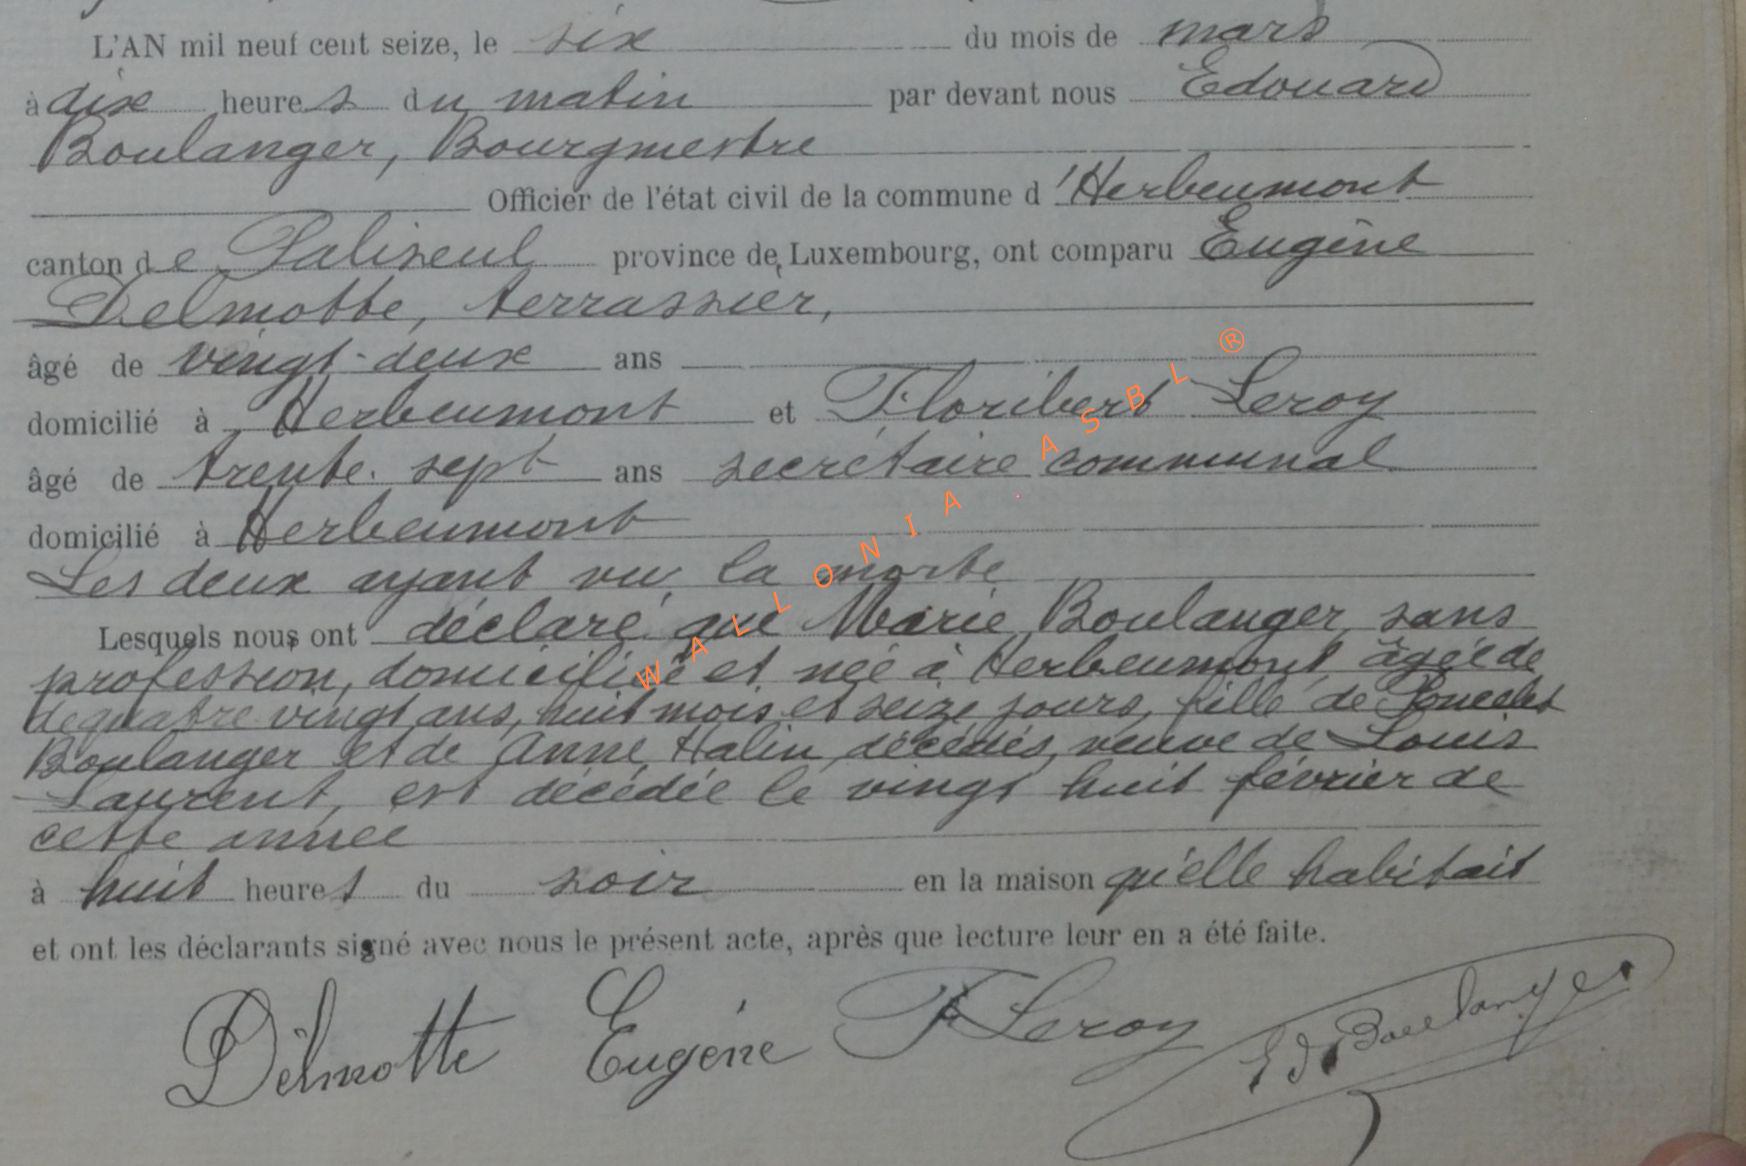 L'AN mil neuf cent seize, le six du mois de mars
à dix heures du matin par devant nous Edouard
Boulanger, Bourgmestre
Officier de l'état civil de la commune d'Herbeumont
canton de Paliseul province de Luxembourg, ont comparu Eugène
Delmotte, terrassier,
âgé de vingt-deux ans
domicilié à Herbeumont et Floribert Leroy
âgé de trente-sept ans secrétaire communal
domicilié à Herbeumont
Les deux ayant vu la morte
Lesquels nous ont déclaré que Marie Boulanger, sans
profession, domiciliée et née à Herbeumont, âgée de
de quatre vingt ans, huit mois et seize jours, fille de Poncelet
Boulanger et de Anne Halin, décédés, veuve de Louis
Laurent, est décédée le vingt huit février de
cette année
à huit heures du soir en la maison qu'elle habitait
et ont les déclarants signé avec nous le présent acte, après que lecture leur en a été faite.
Delmotte Eugène F Leroy Ed. Boulanger
WALLONIA . ASBL ®